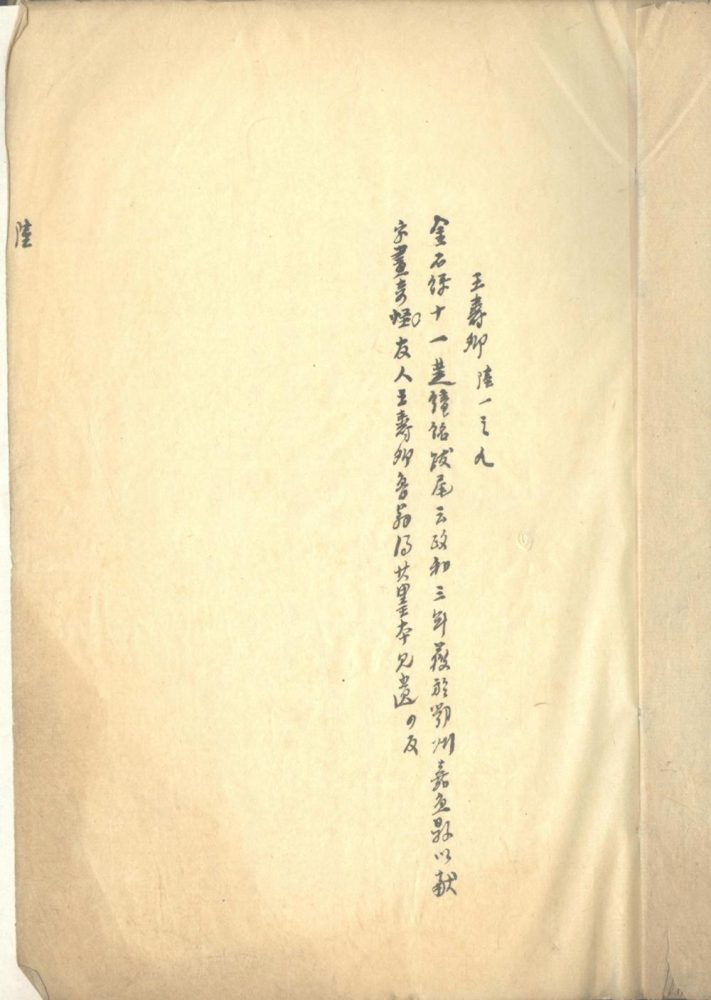 王壽卿 陸一之九
金石録十一 楚鐘銘跋尾云政和三年獲於鄂州嘉魚縣以獻
字畫奇怪。友人王壽卿魯翁得其墨本見遺
陸